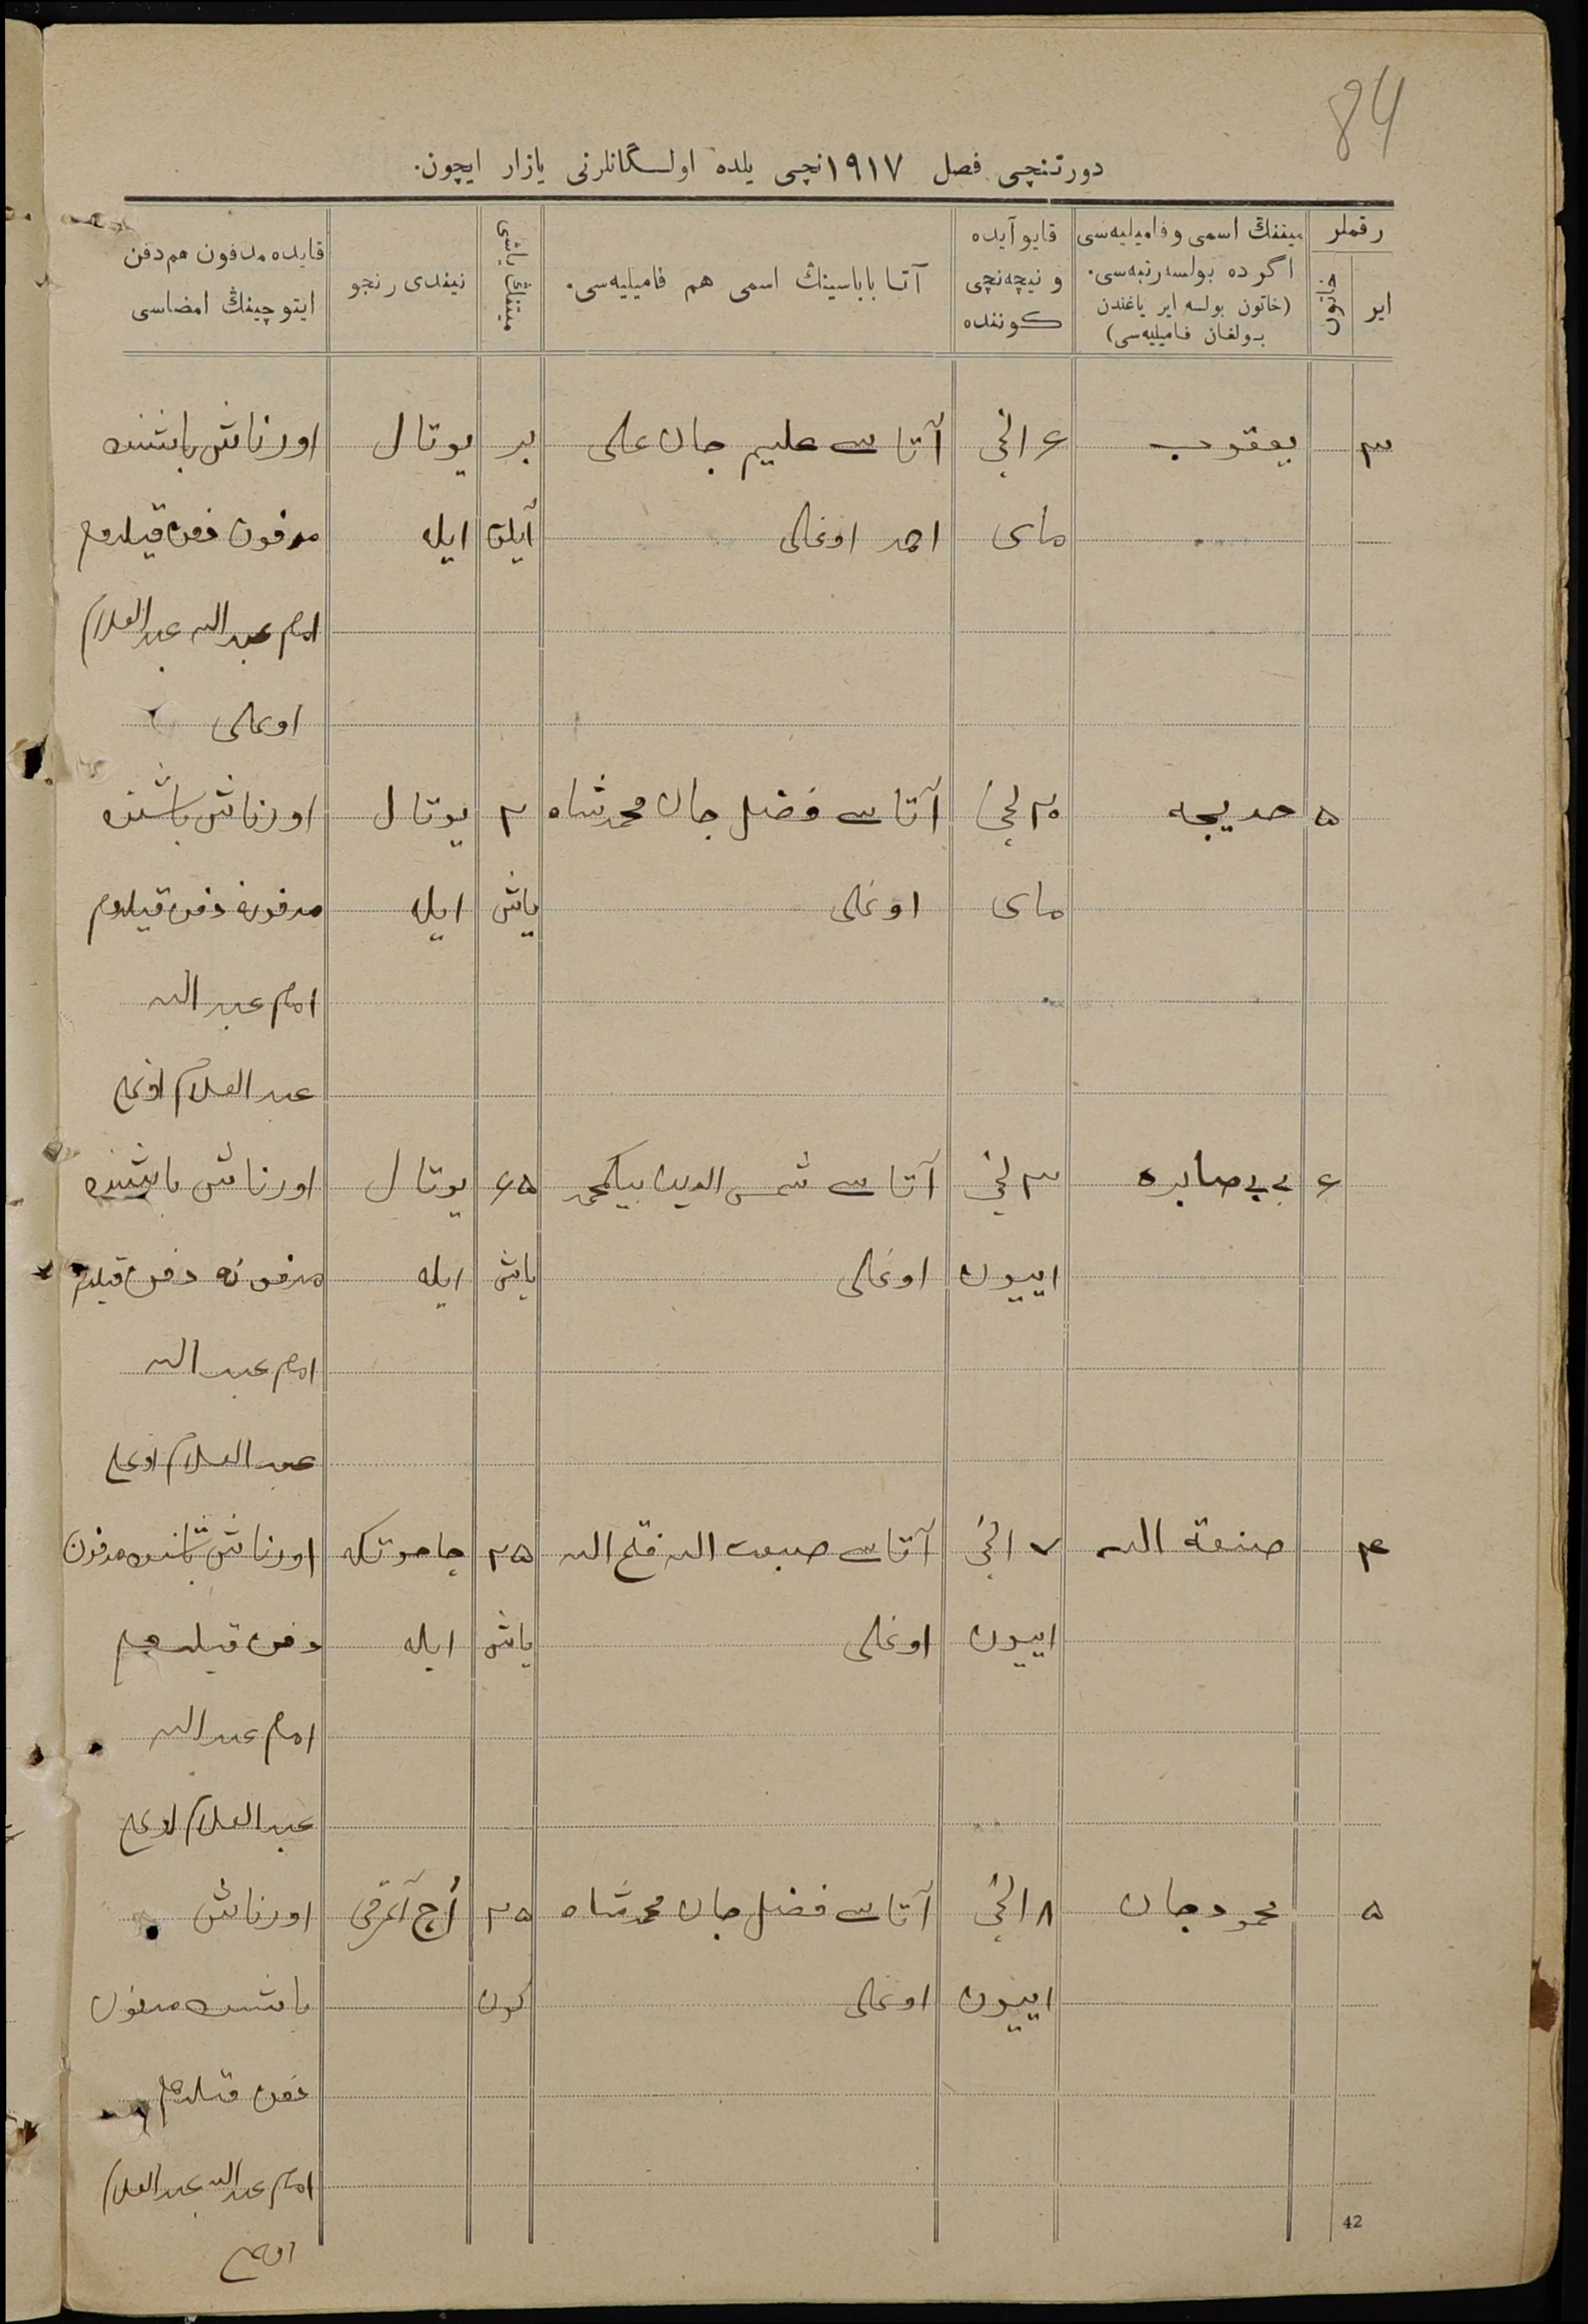 84
دورتنچی فصل ۱۹۱۷نچی یلده اولسگانلرنی یازار ایچون.
رقملر
ایر
خاتون
میتنڭ اسمی و فامیلیه‌سی
اگر ده بولسه رتبه‌سی.
(خاتون بولسه ایر یاغندن
بولغان فامیلیه‌سی)
قایو آیده
و نیچه‌نچی
کوننده
آتا باباسینڭ اسمی هم فامیلیه‌سی.
میتنڭ یاشی
نیندی رنجو
قایده مدفون هم دفن
ایتوچینڭ امضاسی
۳ یعقوب ۶ انچی آتاسے علیم جان علی بر یوتال اورناش باشنده
مای احمد اوغلی آیلق ایله مدفون دفن قیلدوم
امام عبد الله عبد العلام
اوغلی
۵ خدیجه ۲۰ نچی آتاسے فضل جان محمدشاه ۲ یوتال اورناش باشنده
مای اوغلی یاش ایله مدفونه دفن قیلدوم
امام عبد الله
عبد العلام اوغلی
۶ بی بی صابره ۳ نچی آتاسے شمس الدین بیکمحمد ۶۵ یوتال اورناش باشنده
اییون اوغلی یاش ایله مدفونه دفن قیلدم
امام عبد الله
عبد العلام اوغلی
۴ صنعة الله ۷ انچی آتاسے صبعت الله فتح الله ۲۵ چاحوتکه اورناش باشنده مدفون
اییون اوغلی یاش ایله دفن قیلدوم
امام عبد الله
عبد العلام اوغلی
۵ محمود جان ۸ انچی آتاسے فضل جان محمدشاه ۲۵ اچ آغرقی اورناش
اییون اوغلی کون باشنده مدفون
دفن قیلدوم
امام عبد الله عبد العلام
اوغلی
42